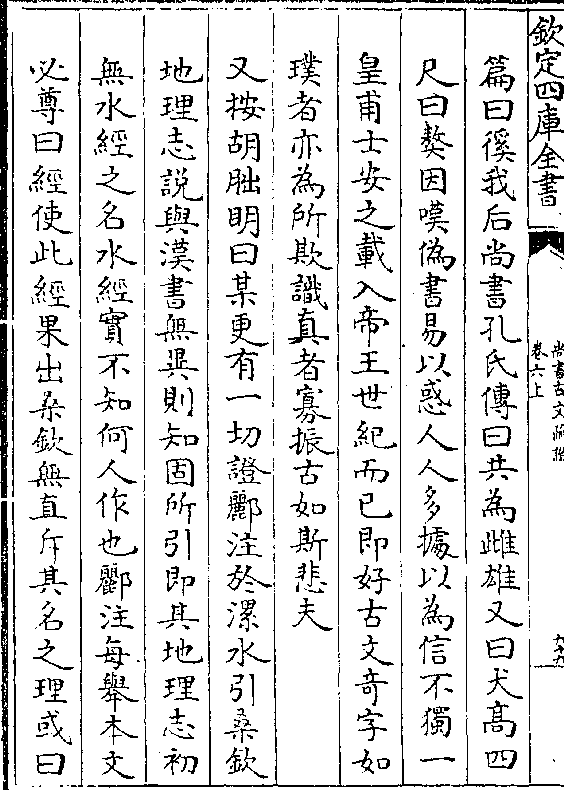 欽定四庫全書
尚書古文疏證
卷六上
九十九
篇曰徯我后尚書孔氏傳曰共為雌雄又曰犬高四
尺曰獒因嘆偽書易以惑人人多據以為信不獨一
皇甫士安之載入帝王世紀而已即好古文奇字如
璞者亦為所欺識真者寡振古如斯悲夫
又按胡朏明曰某更有一切證酈注於漯水引桑欽
地理志說與漢書無異則知固所引即其地理志初
無水經之名水經實不知何人作也酈注每舉本文
必尊曰經使此經果出桑欽無直斥其名之理或曰